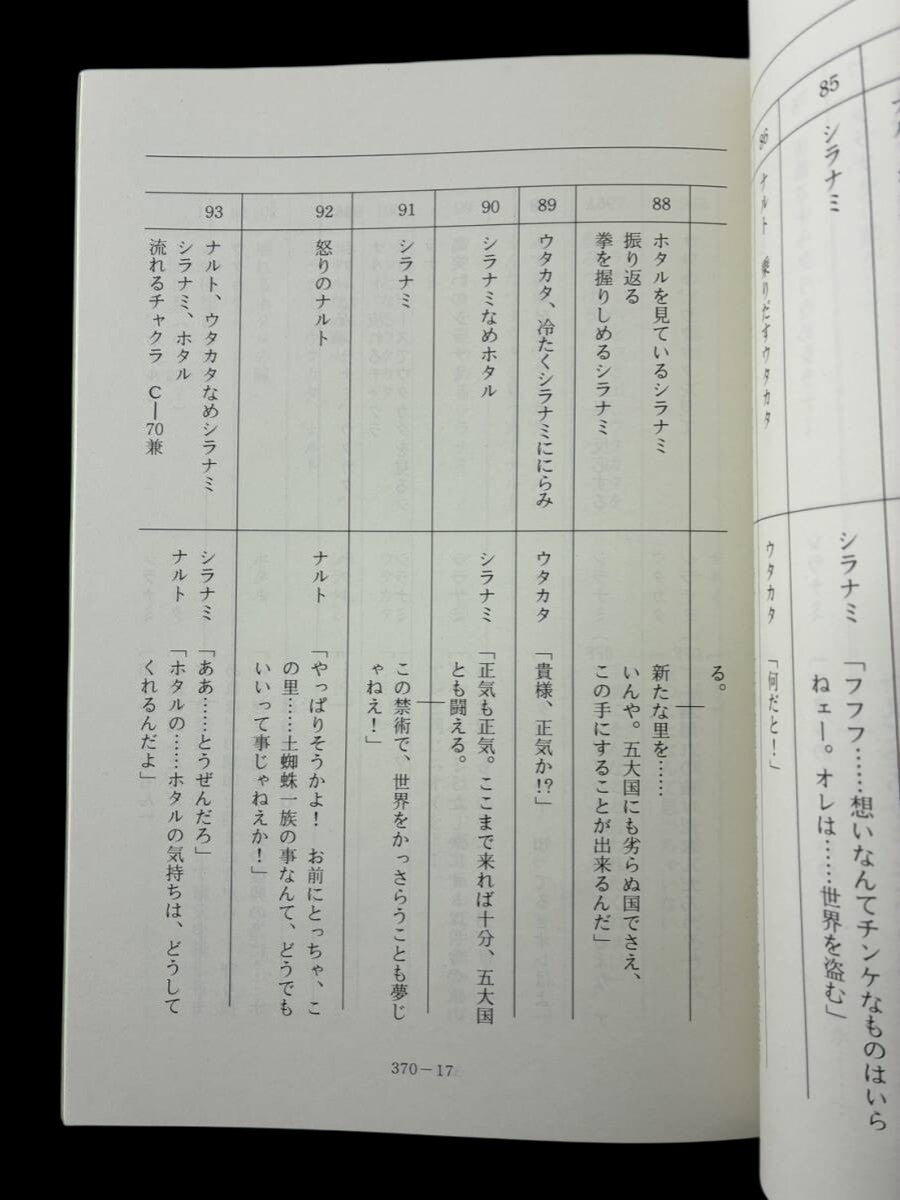 85
シラナミ
シラナミ 「フフフ……想いなんてチンケなものはいら
ねェー。オレは……世界を盗む」
86
ナルト 乗りだすウタカタ
ウタカタ 「何だと！」
る。
88
ホタルを見ているシラナミ
振り返る
拳を握りしめるシラナミ
新たな里を……
いんや。五大国にも劣らぬ国でさえ、
この手にすることが出来るんだ」
89
ウタカタ、冷たくシラナミににらみ
ウタカタ 「貴様、正気か!?」
90
シラナミなめホタル
シラナミ 「正気も正気。ここまで来れば十分、五大国
とも闘える。
91
シラナミ
この禁術で、世界をかっさらうことも夢じ
ゃねえ！」
92
怒りのナルト
ナルト 「やっぱりそうかよ！ お前にとっちゃ、こ
の里……土蜘蛛一族の事なんて、どうでも
いいって事じゃねえか！」
93
ナルト、ウタカタなめシラナミ
シラナミ、ホタル
流れるチャクラ C―70兼
シラナミ 「ああ……とうぜんだろ」
ナルト 「ホタルの……ホタルの気持ちは、どうして
くれるんだよ」
370－17